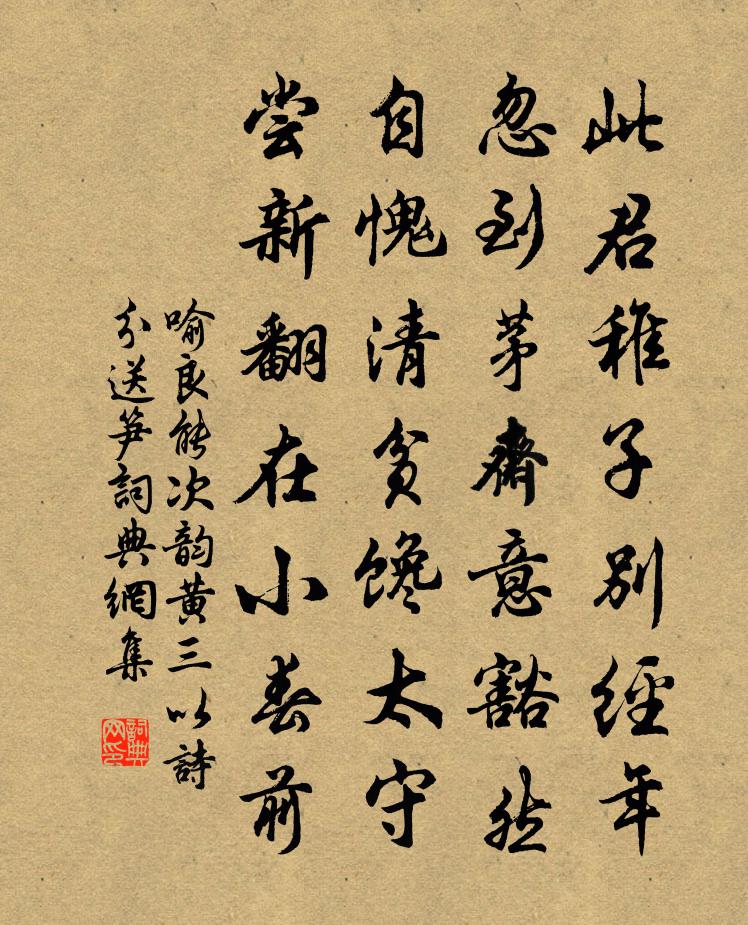 此君稚子別經年
忽到茅齋意豁然
自愧清貧馋太守
尝新翻在小春前
喻良能次韵黄三以詩
分送笋詞典網集
詞典
网印